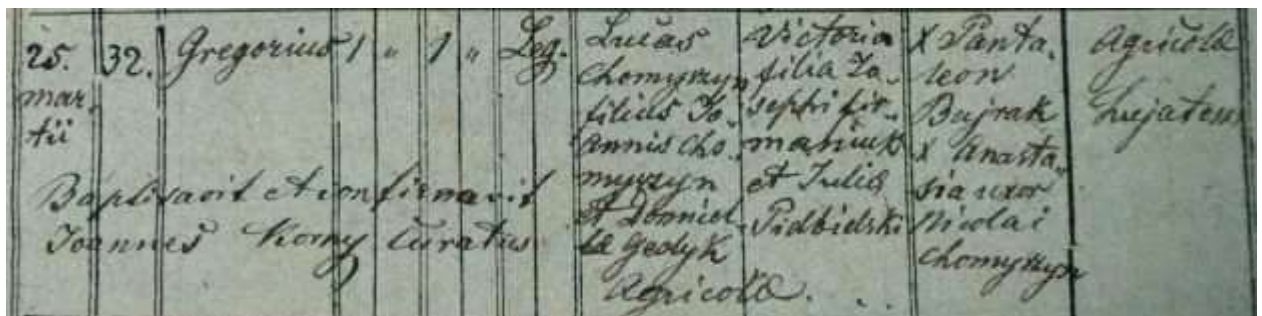 25. martii
32.
Gregorius
1 " 1 "
Leg.
Lucas
Chomyszyn
filius Jo-
annis Cho-
myszyn
et Domicel-
la Gedyk
Agricola.
Victoria
filia Jo-
sephi Fir-
maniuk
et Julia
Pidbielski
x Panta-
leon
Bujrak
x Anasta-
sia uxor
Nicolai
Chomyszyn
Agricola
Baptisavit et confirmavit
Joannes Korny Curatus